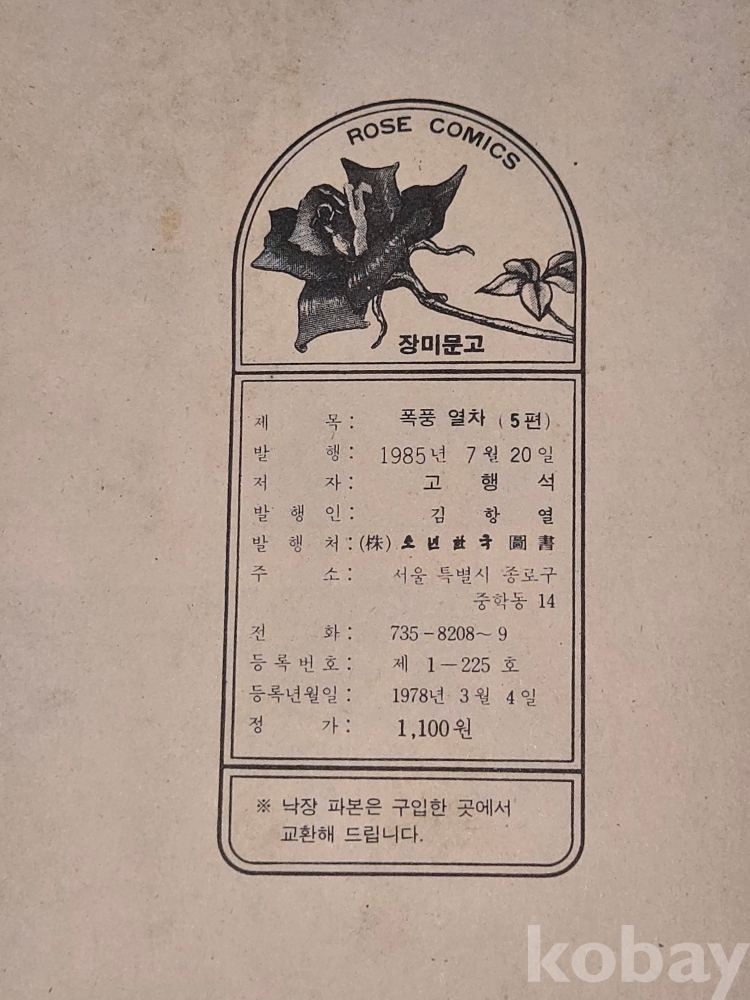 ROSE COMICS
장미문고
제 목: 폭풍 열차 (5편)
발 행: 1985년 7월 20일
저 자: 고 행 석
발 행 인: 김 항 열
발 행 처: (株) 소년한국 圖書
주 소: 서울 특별시 종로구
중학동 14
전 화: 735-8208~9
등 록 번 호: 제 1-225 호
등록년월일: 1978년 3월 4일
정 가: 1,100원
※ 낙장 파본은 구입한 곳에서
교환해 드립니다.
kobay